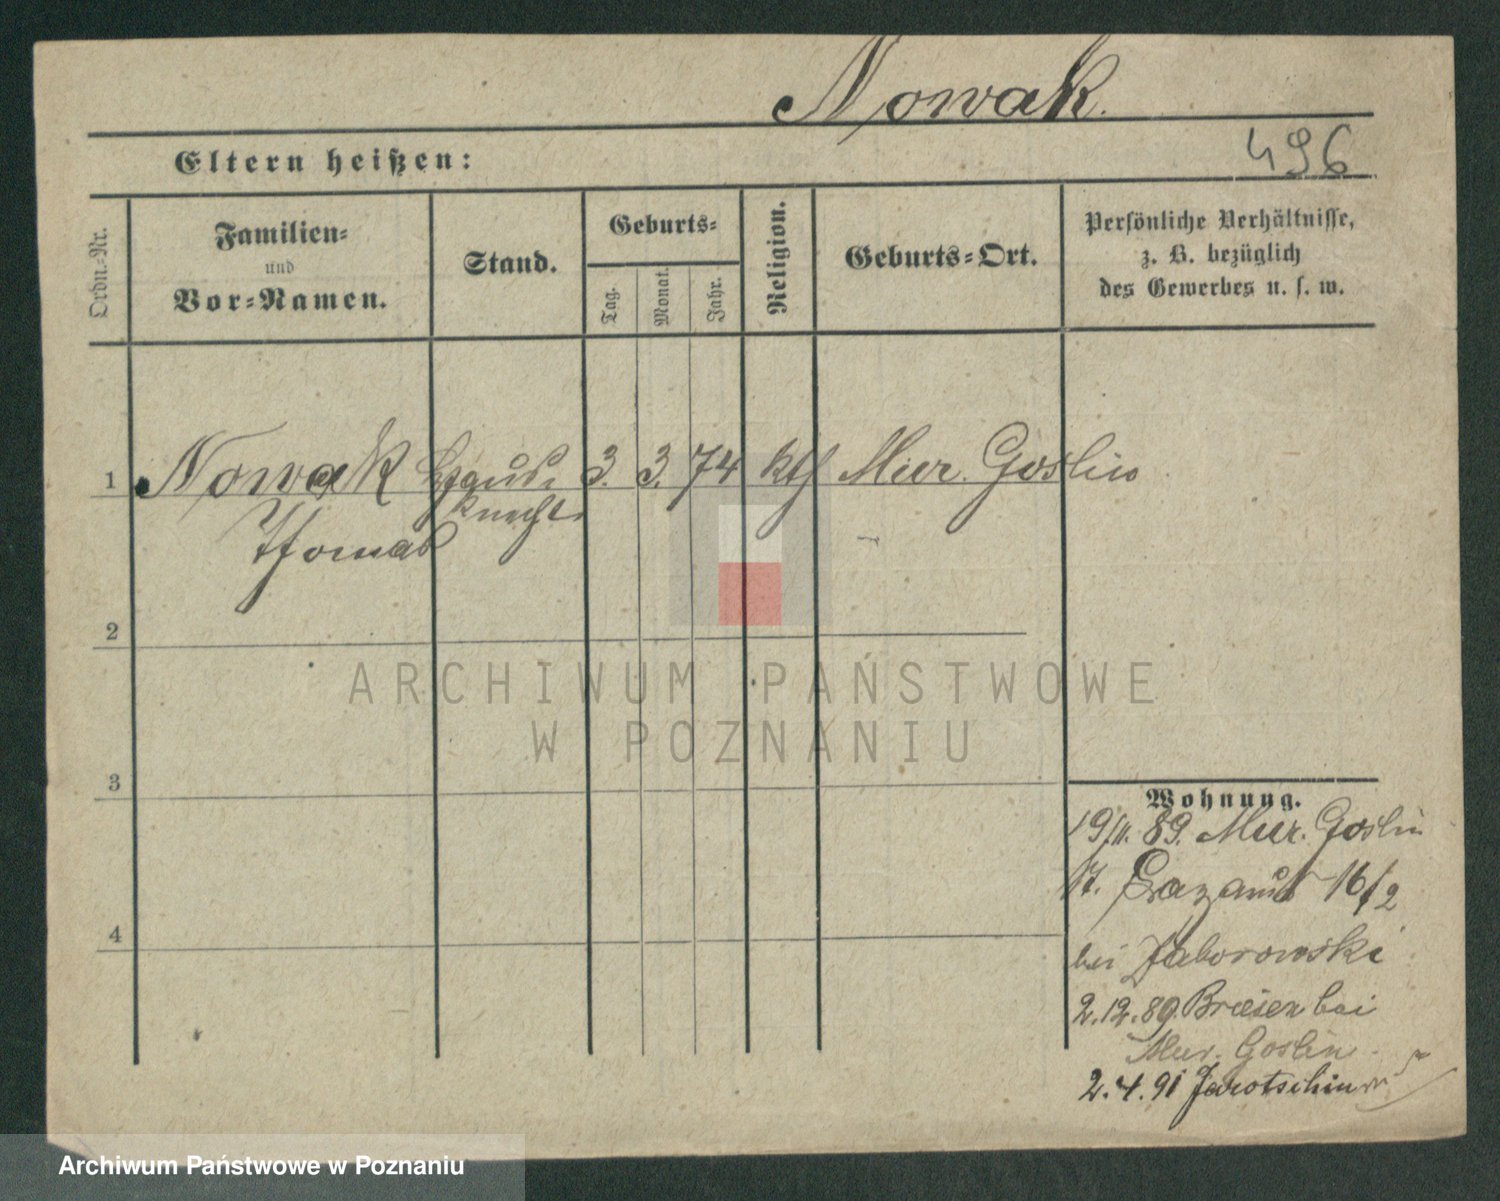 Nowak.
Eltern heißen:
496
Ordn.-Nr.
Familien-
und
Vor-Namen.
Stand.
Geburts-
Tag.
Monat.
Jahr.
Religion.
Geburts-Ort.
Persönliche Verhältnisse,
z. B. bezüglich
des Gewerbes u. s. w.
1 Nowak Haus- 3. 3. 74 kth Mur. Goslin
Thomas knecht
2
3
4
ARCHIWUM PAŃSTWOWE
W POZNANIU
Wohnung.
19/11. 89. Mur. Goslin
17. 16/2
bei Zaborowski
2.12.89. Briesen bei
Mur. Goslin
2.4.91 Jarotschin
Archiwum Państwowe w Poznaniu